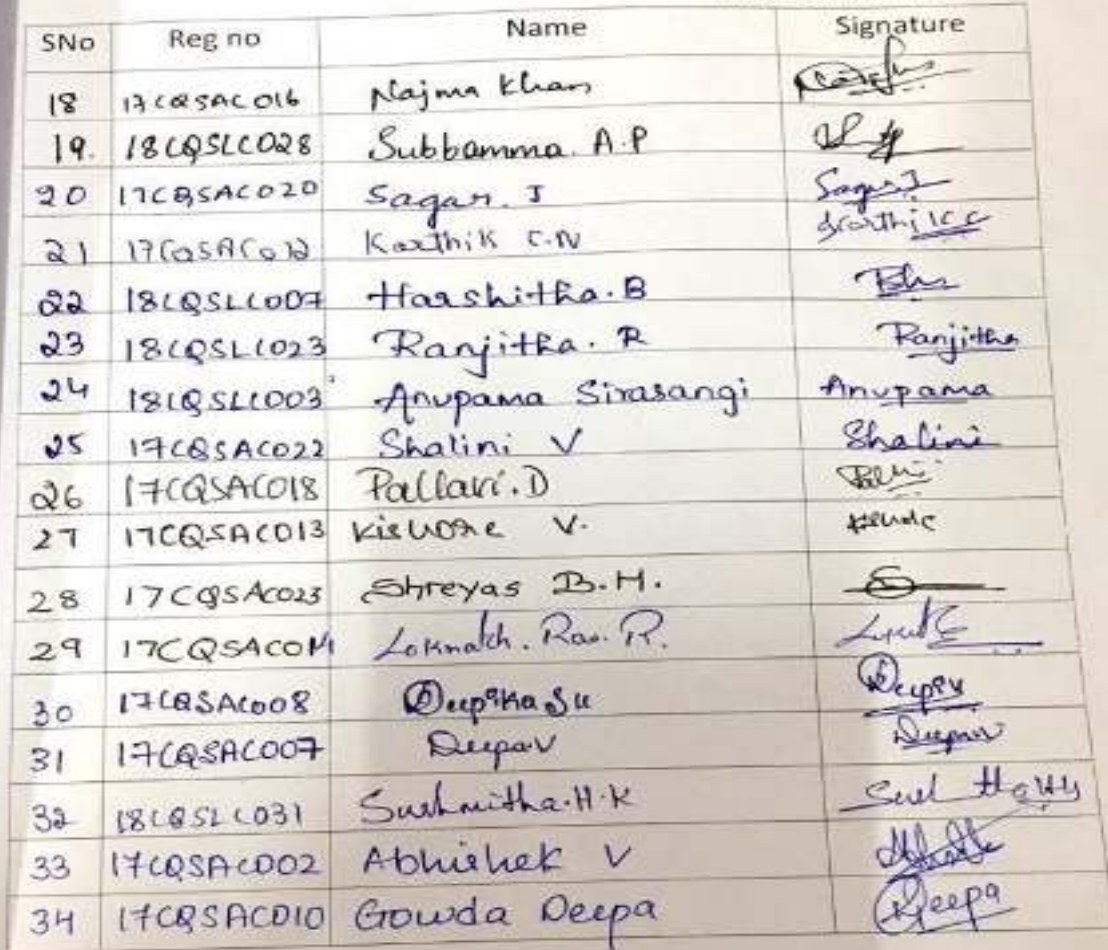 SNo Reg no Name Signature
18 17CQSAC016 Najma Khan
19. 18CQSLC028 Subbamma. A.P
20 17CQSAC020 Sagar. J Sagar J
21 17CQSAC012 Karthik C.N Karthik C
22 18CQSLC007 Harshitha.B
23 18CQSLC023 Ranjitha. R Ranjitha
24 18CQSLC003 Anupama Sirasangi Anupama
25 17CQSAC022 Shalini V Shalini
26 17CQSAC018 Pallavi.D
27 17CQSAC013 Kishore V.
28 17CQSAC023 Shreyas B.H.
29 Loknath. Rao. R.
30 17CQSAC008 Deepika Su
31 17CQSAC007 Deepa V Deepa V
32 18CQSLC031 Sushmitha.H.K
33 17CQSAC002 Abhishek V
34 17CQSAC010 Gowda Deepa Deepa